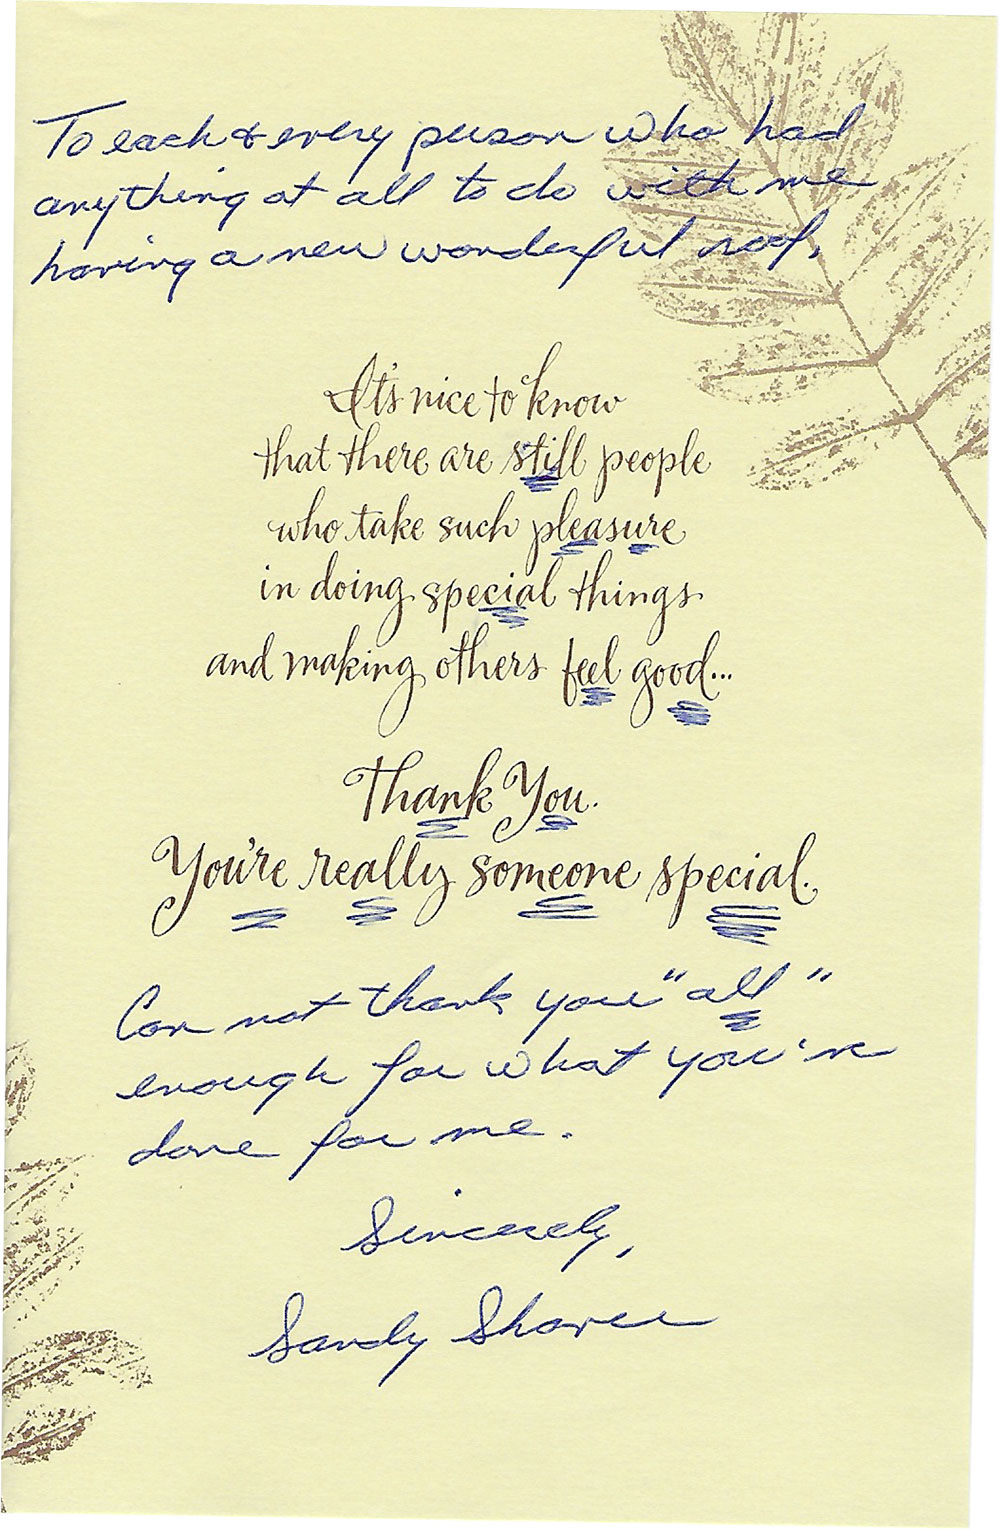 To each & every person who had
anything at all to do with me
having a new wonderful roof,
It's nice to know
that there are still people
who take such pleasure
in doing special things
and making others feel good...
Thank You.
You're really someone special.
Can not thank you "all"
enough for what you've
done for me.
Sincerely,
Sandy